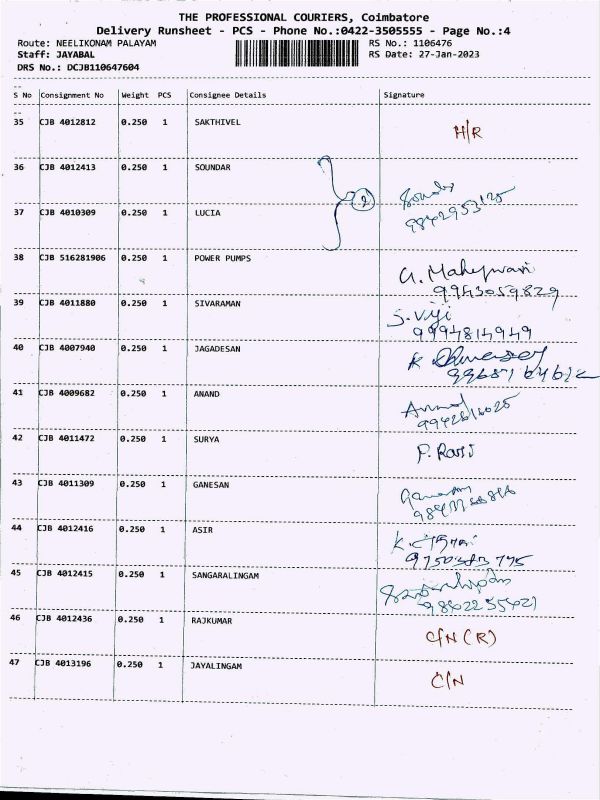 THE PROFESSIONAL COURIERS, Coimbatore
Delivery Runsheet - PCS - Phone No.:0422-3505555 - Page No.:4
Route: NEELIKONAM PALAYAM RS No.: 1106476
Staff: JAYABAL RS Date: 27-Jan-2023
DRS No.: DCJB110647604
--
S No Consignment No Weight PCS Consignee Details Signature
--
35 CJB 4012812 0.250 1 SAKTHIVEL H/R
36 CJB 4012413 0.250 1 SOUNDAR
2
37 CJB 4010309 0.250 1 LUCIA 9842953125
38 CJB 516281906 0.250 1 POWER PUMPS G. Maheswari
9943059829
39 CJB 4011880 0.250 1 SIVARAMAN S. Viji
9994814949
40 CJB 4007940 0.250 1 JAGADESAN K
41 CJB 4009682 0.250 1 ANAND Anand
42 CJB 4011472 0.250 1 SURYA P. Ravi
43 CJB 4011309 0.250 1 GANESAN Ganesan
44 CJB 4012416 0.250 1 ASIR K.
45 CJB 4012415 0.250 1 SANGARALINGAM
46 CJB 4012436 0.250 1 RAJKUMAR C/N (R)
47 CJB 4013196 0.250 1 JAYALINGAM C/N